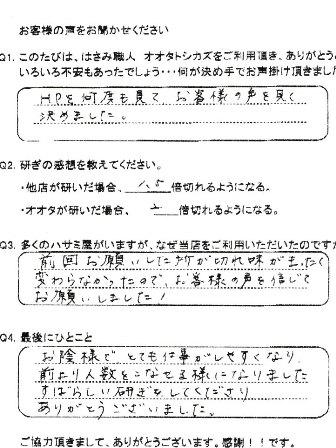 お客様の声をお聞かせください
Q1. このたびは、はさみ職人 オオタトシカズをご利用頂き、ありがとう
いろいろ不安もあったでしょう・・・何が決め手でお声掛け頂きまし
HPを何度も見て、お客様の声を見て
決めました。
Q2. 研ぎの感想を教えてください。
・他店が研いだ場合、 1.5 倍切れるようになる。
・オオタが研いだ場合、 倍切れるようになる。
Q3. 多くのハサミ屋がいますが、なぜ当店をご利用いただいたのですか
前回お願いした所が切れ味がまったく
変わらなかったので、お客様の声を信じて
お願いしました!
Q4. 最後にひとこと
お陰様でとても仕事がしやすくなり
前より人数をこなせる様になりました
すばらしい研ぎをしてくださり
ありがとうございました。
ご協力頂きまして、ありがとうございます。感謝!!です。